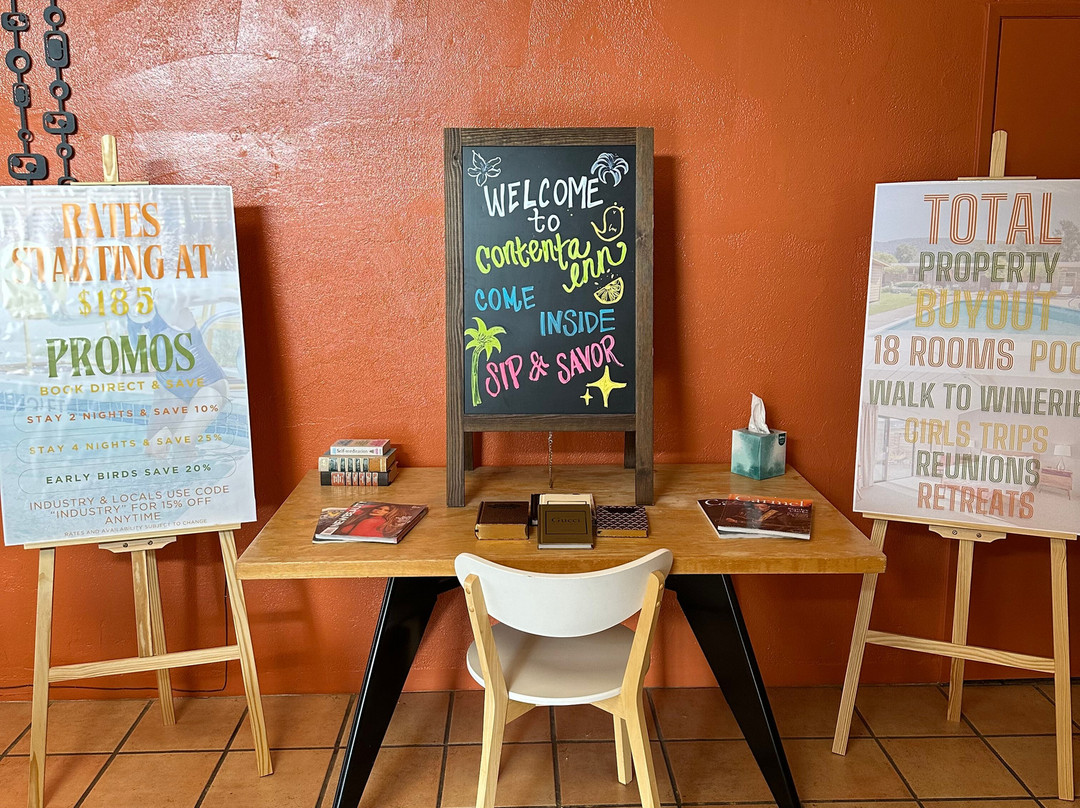 RATES
STARTING AT
$185
PROMOS
BOOK DIRECT & SAVE
STAY 2 NIGHTS & SAVE 10%
STAY 4 NIGHTS & SAVE 25%
EARLY BIRDS SAVE 20%
INDUSTRY & LOCALS USE CODE
"INDUSTRY" FOR 15% OFF
ANYTIME
RATES AND AVAILABILITY SUBJECT TO CHANGE
WELCOME
to
Contenta
inn
COME
INSIDE
SIP & SAVOR
Gucci
TOTAL
PROPERTY
BUYOUT
18 ROOMS POO
WALK TO WINERIE
GIRLS TRIPS
REUNIONS
RETREATS